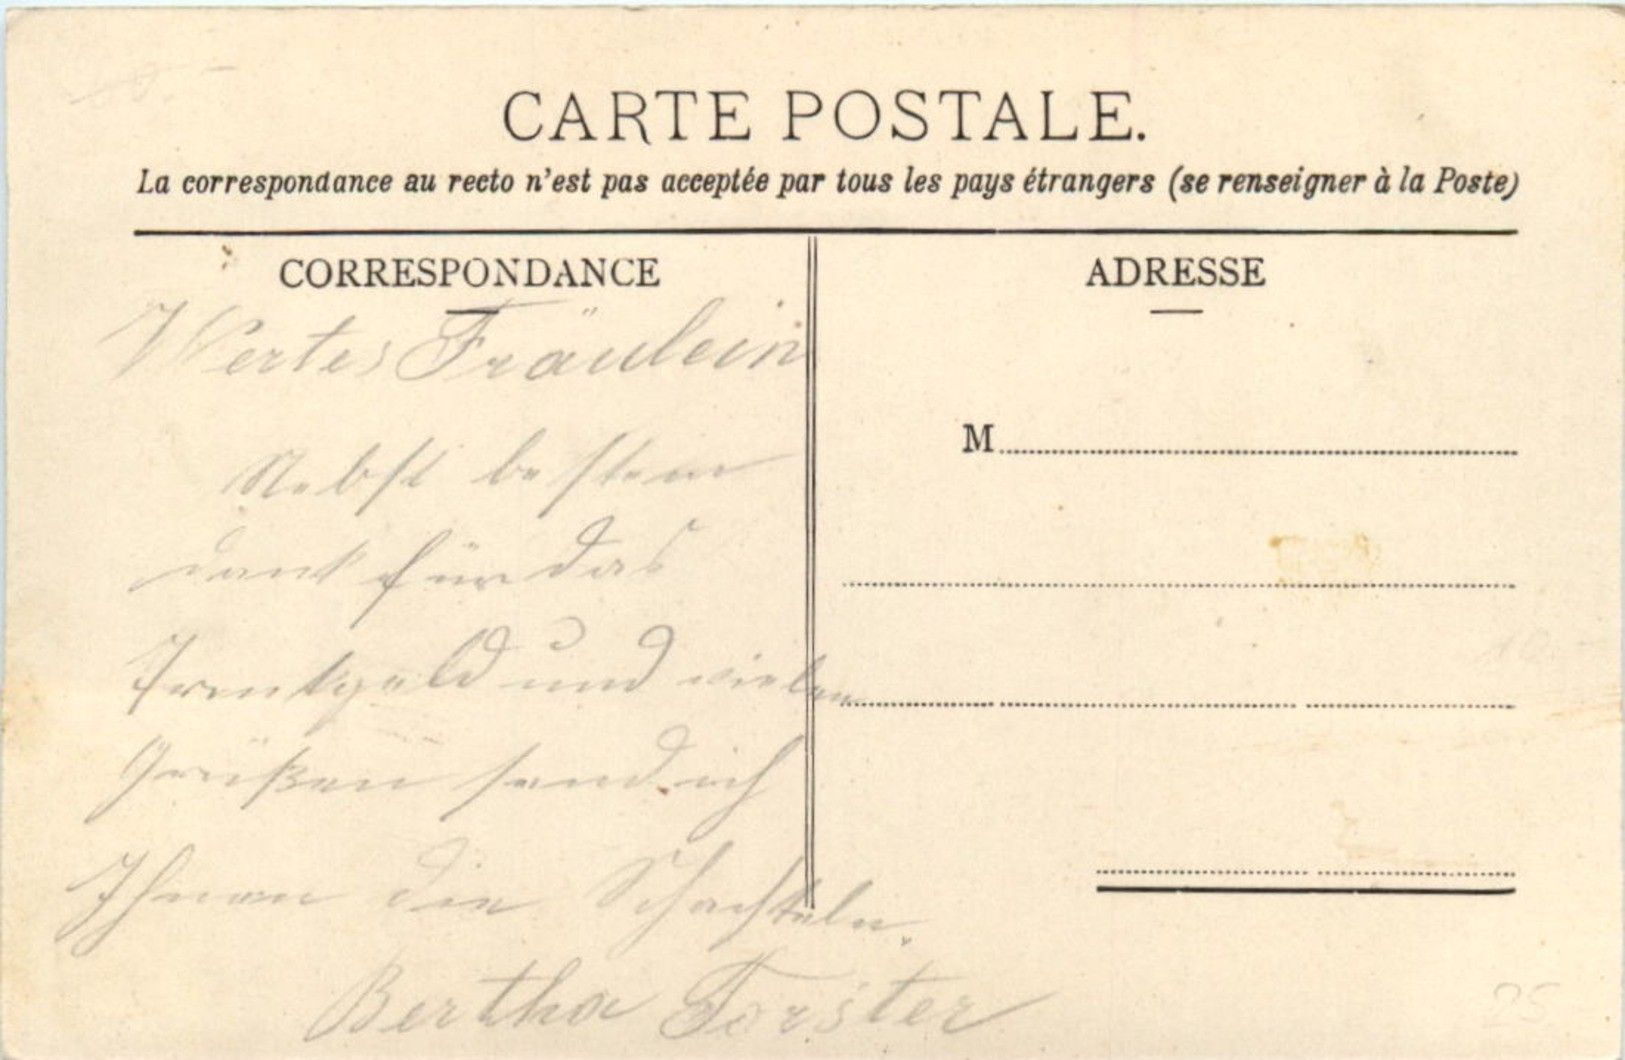 CARTE POSTALE.
La correspondance au recto n'est pas acceptée par tous les pays étrangers (se renseigner à la Poste)
CORRESPONDANCE
ADRESSE
Wertes Fräulein
M
Nebst bestem
dank für das
Trinkgeld und vielen
Grüßen send ich
Ihnen die Schachteln.
Bertha Forster
25